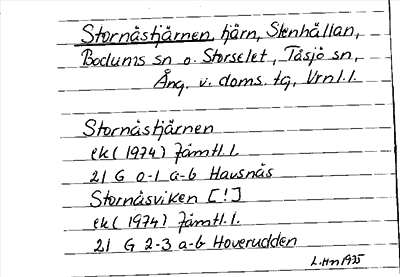 Stornästjärnen, tjärn, Stenhällan,
Bodums sn o. Storselet, Tåsjö sn,
Ång. v. doms. tg, Vrnl.l.
Stornästjärnen
ek (1974) Jämtl. l.
21 G 0-1 a-b Hausnäs
Stornäsviken [!]
ek (1974) Jämtl. l.
21 G 2-3 a-b Hoverudden
L.Hn 1975